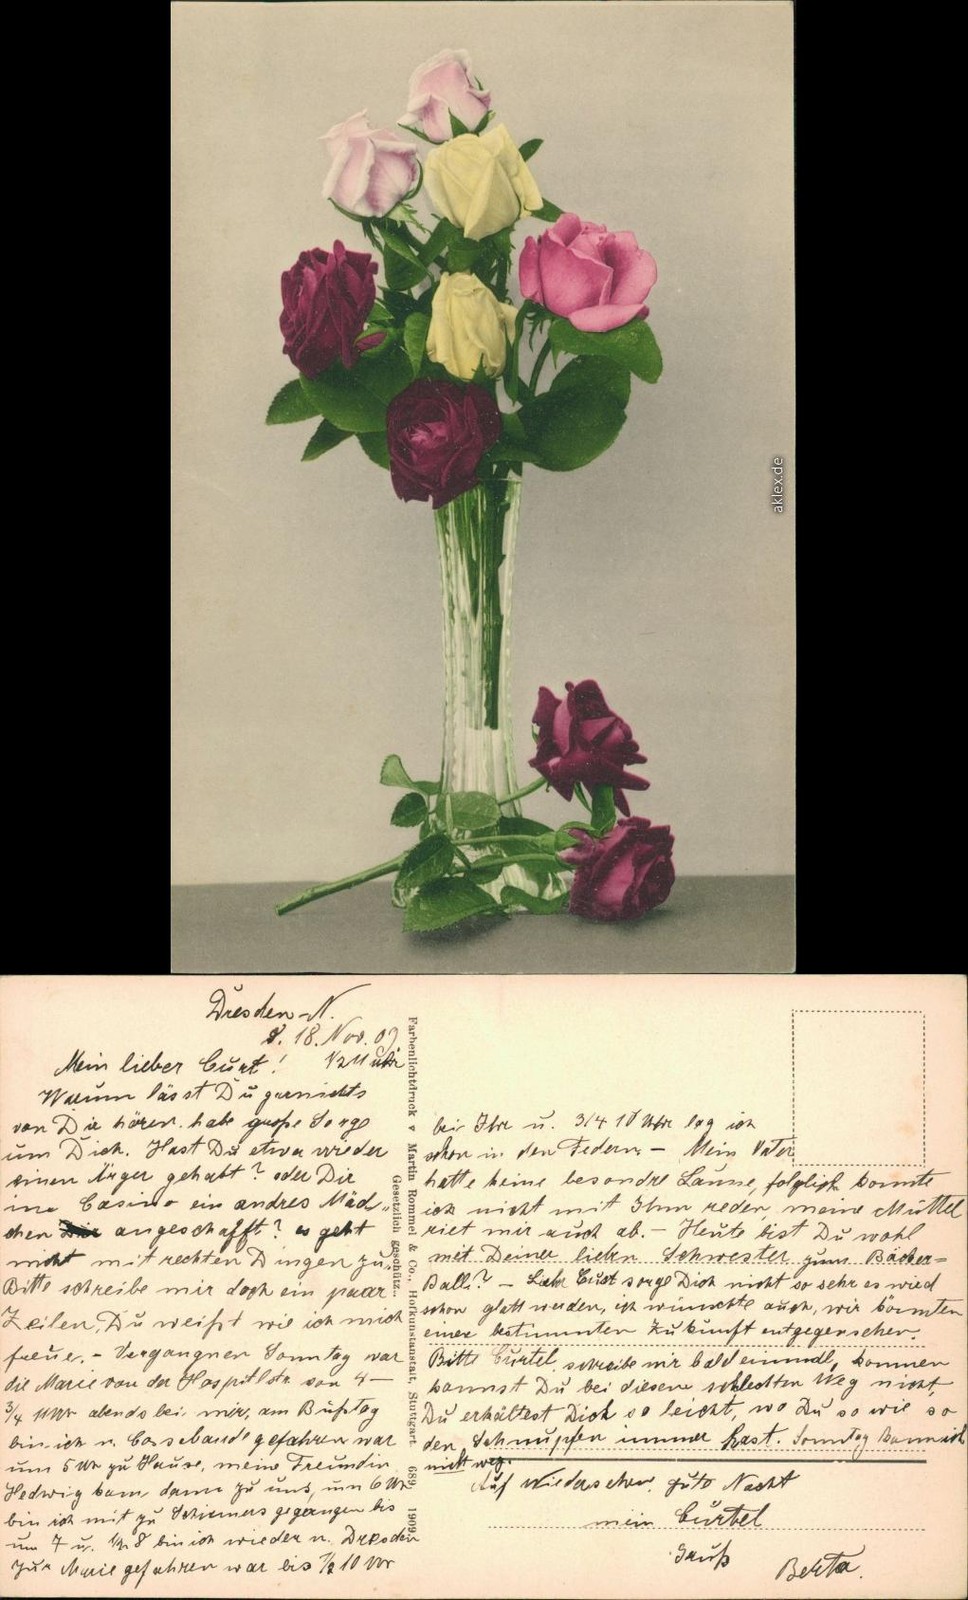 aklex.de
Dresden-N.
d. 18. Nov. 09
Mein lieber Curt! 1/2 11 Uhr
Warum lässt Du garnichts
von Dir hören, habe große Sorge
um Dich. Hast Du etwa wieder
einen Ärger gehabt? oder Dir
im Casino ein andres Mäd-
chen angeschafft? es geht
nicht mit rechten Dingen zu.
Bitte schreibe mir doch ein paar
Zeilen, Du weißt wie ich mich
freue. - Vergangnen Sonntag war
die Marie von der Hospitalstr von 4 -
3/4 11 Uhr abends bei mir, am Bußtag
bin ich n. gefahren war
um 5 Uhr zu Hause, meine Freundin
Hedwig kam dann zu uns, um 6 Uhr
bin ich mit zu gegangen bis
um 7 u. 1/2 8 bin ich wieder n. Dresden
zur Marie gefahren war bis 1/2 10 Uhr
Farbenlichtdruck v. Martin Rommel & Co., Hofkunstanstalt, Stuttgart. 689. 1909.
Gesetzlich geschützt.
bei Ihr u. 3/4 10 Uhr lag ich
schon in den Federn. - Mein Vater
hatte keine besondre Laune, folglich konnte
ich nicht mit Ihm reden, meine Mutter
riet mir auch ab. - Heute bist Du wohl
mit Deiner lieben Schwester zum Bäcker-
Ball? - Lieber Curt sorge Dich nicht so sehr es wird
schon glatt werden, ich wünschte auch, wir könnten
einer bestimmten Zukunft entgegensehen.
Bitte Curtel, schreibe mir bald einmal, kommen
kannst Du bei diesem schlechten Weg nicht,
Du erhältest Dich so leicht, wo Du so wie so
den Schnupfen immer hast. Sonntag kann ich
nicht weg.
Auf Wiedersehen. gute Nacht
mein Curtel
Gruß
Berta.